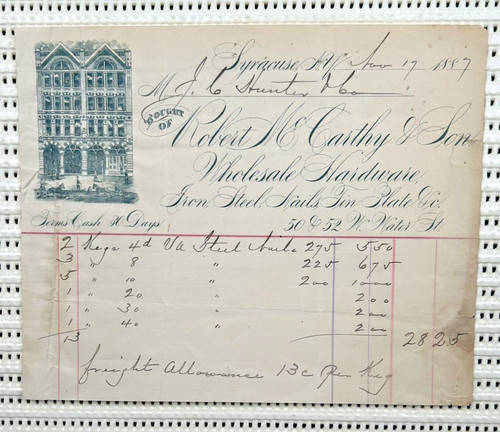 Syracuse, N.Y. Nov 17 1887
M J. C Hunter & Co
BOUGHT OF
Robert McCarthy & Son
Wholesale Hardware,
Iron, Steel, Nails, Tin Plate &c.
Terms Cash 30 Days 50 & 52 W. Water St.
2 Kegs 4d Steel Nails 275 550
3 " 8 " 225 675
5 " 10 " 200 1000
1 " 20 " 200
1 " 30 " 200
1 " 40 " 200
13 2825
freight Allowance 13c Per Keg